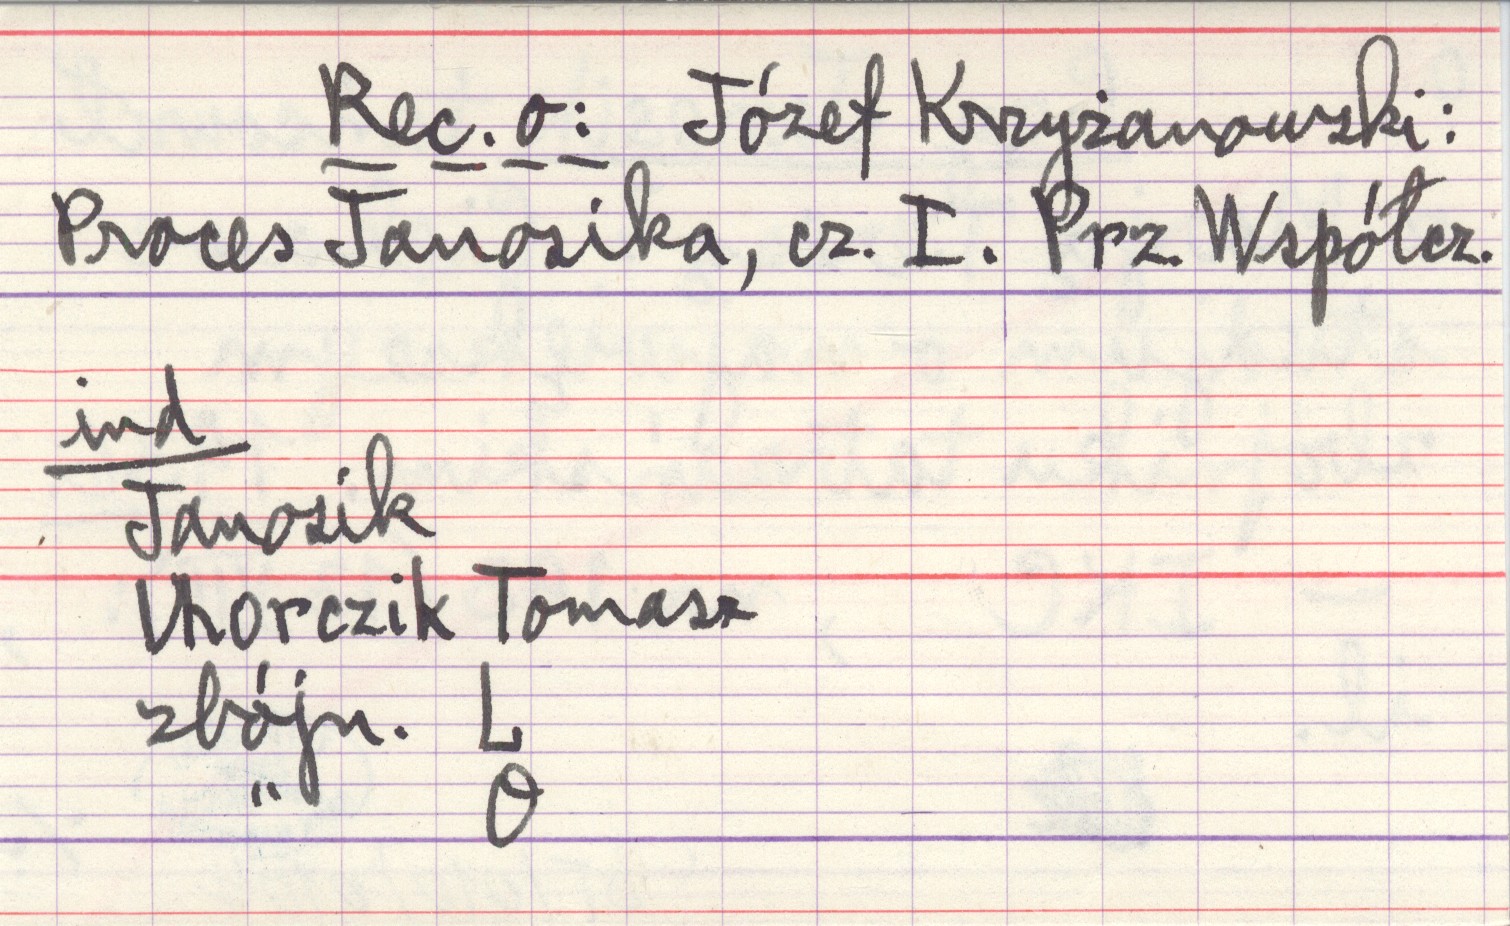 Rec. o: Józef Krzyżanowski:
Proces Janosika, cz. I. Prz. Współcz.
ind
Janosik
Uhorczik Tomasz
zbójn. L
" O